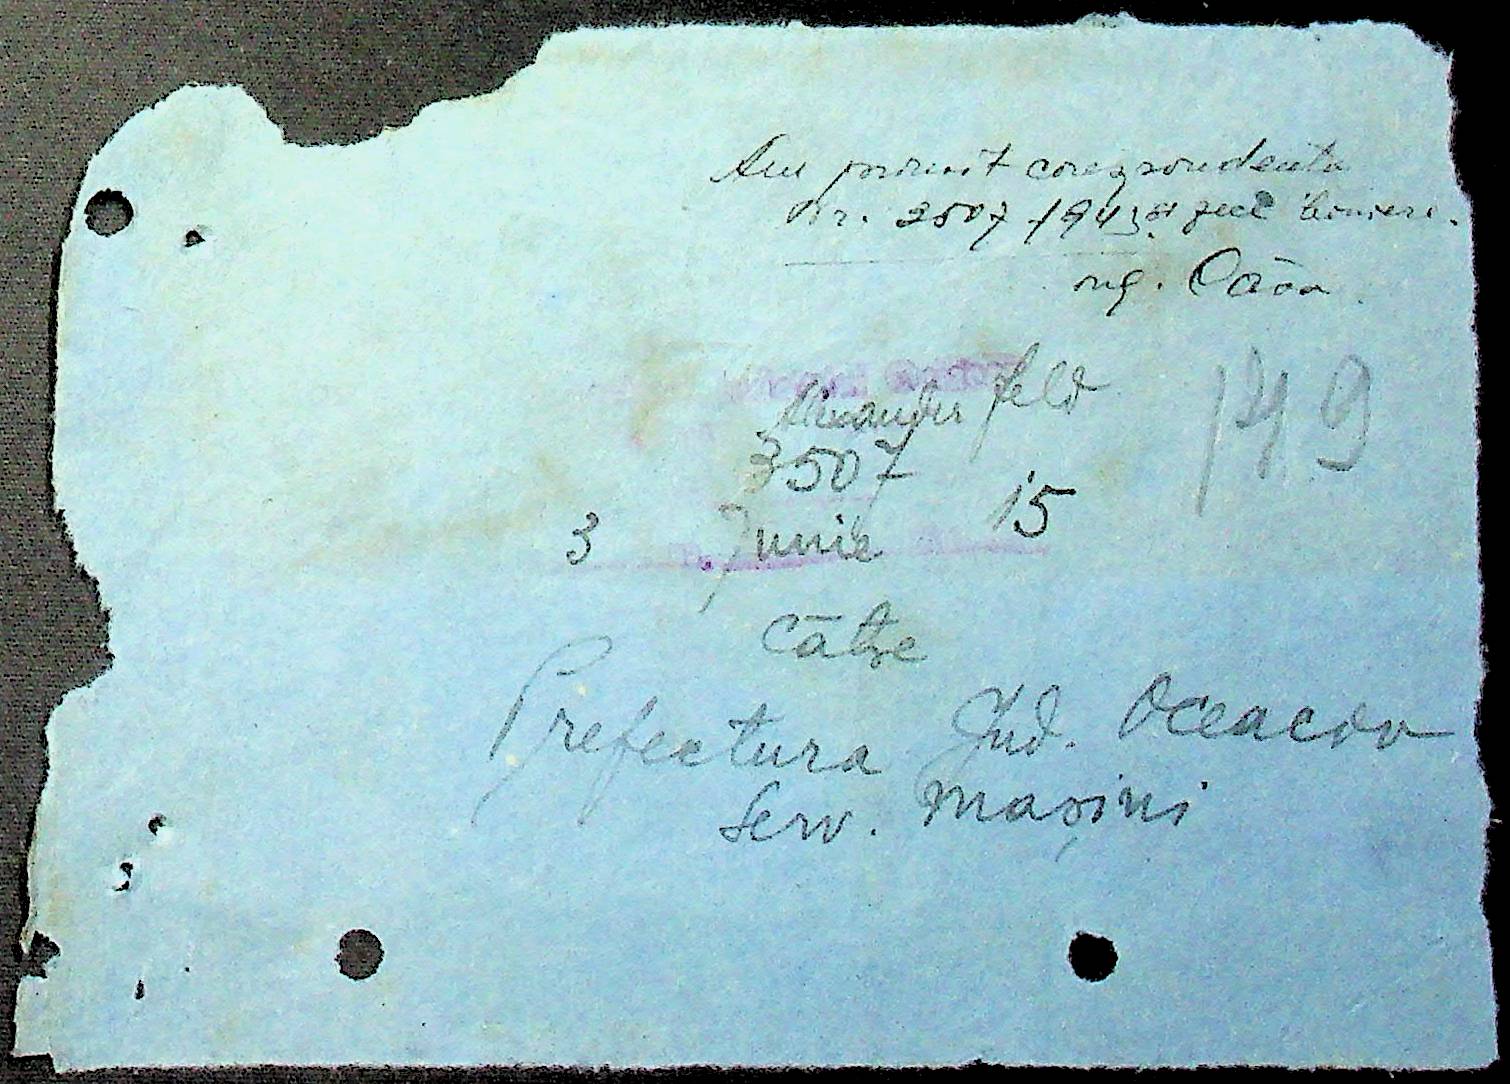 Am primit corespondenta
Nr. 3507 /943 zece
ing.
Alexander feld
149
3507
3 Junie 15
Către
Prefectura Jud. Oceacov
Serv. Mașini